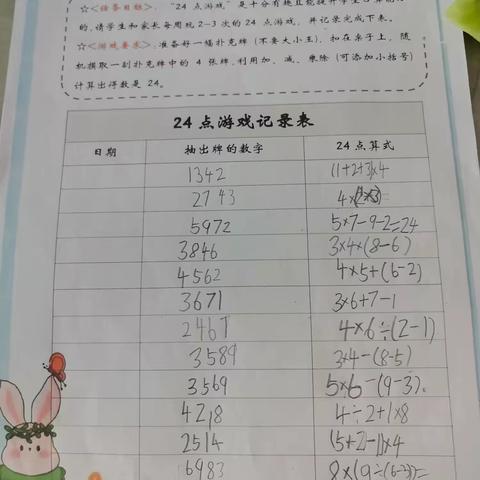 ☆<任务目标>: "24 点游戏" 是十分有趣且能提升学生
的,请学生和家长每周玩 2-3 次的 24 点游戏, 并记录完成下表。
☆<游戏要求>: 准备好一幅扑克牌 (不要大小王), 扣在桌子上, 随
机摸取一副扑克牌中的 4 张牌, 利用加、减、乘除 (可添加小括号)
计算出得数是 24。
24 点游戏记录表
日期 抽出牌的数字 24 点算式
1342 (1+2+3)×4
2743 4×
5972 5×7-9-2=24
3846 3×4×(8-6)
4562 4×5+(6-2)
3671 3×6+7-1
246 4×6÷(2-1)
3589 3×4-(8-5)
3569 5×6-(9-3)
4218 4÷2+1×8
2514 (5+2-1)×4
6983 8×(9÷(6-3))=